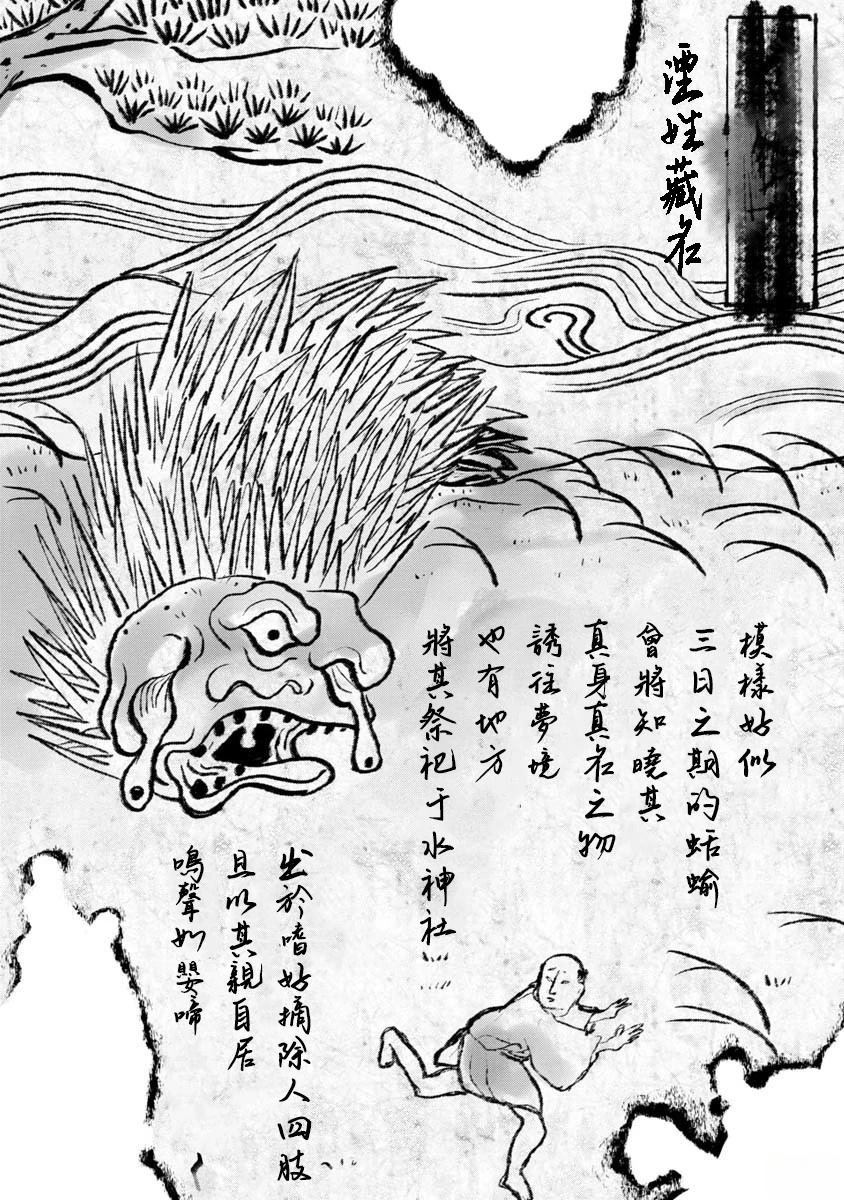 湮姓藏名
模樣好似
三日之期的蛞蝓
會將知曉其
真身真名之物
誘往夢境
也有地方
將其祭祀于水神社
出於嗜好摘除人四肢
且以其親自居
鳴聲如嬰啼